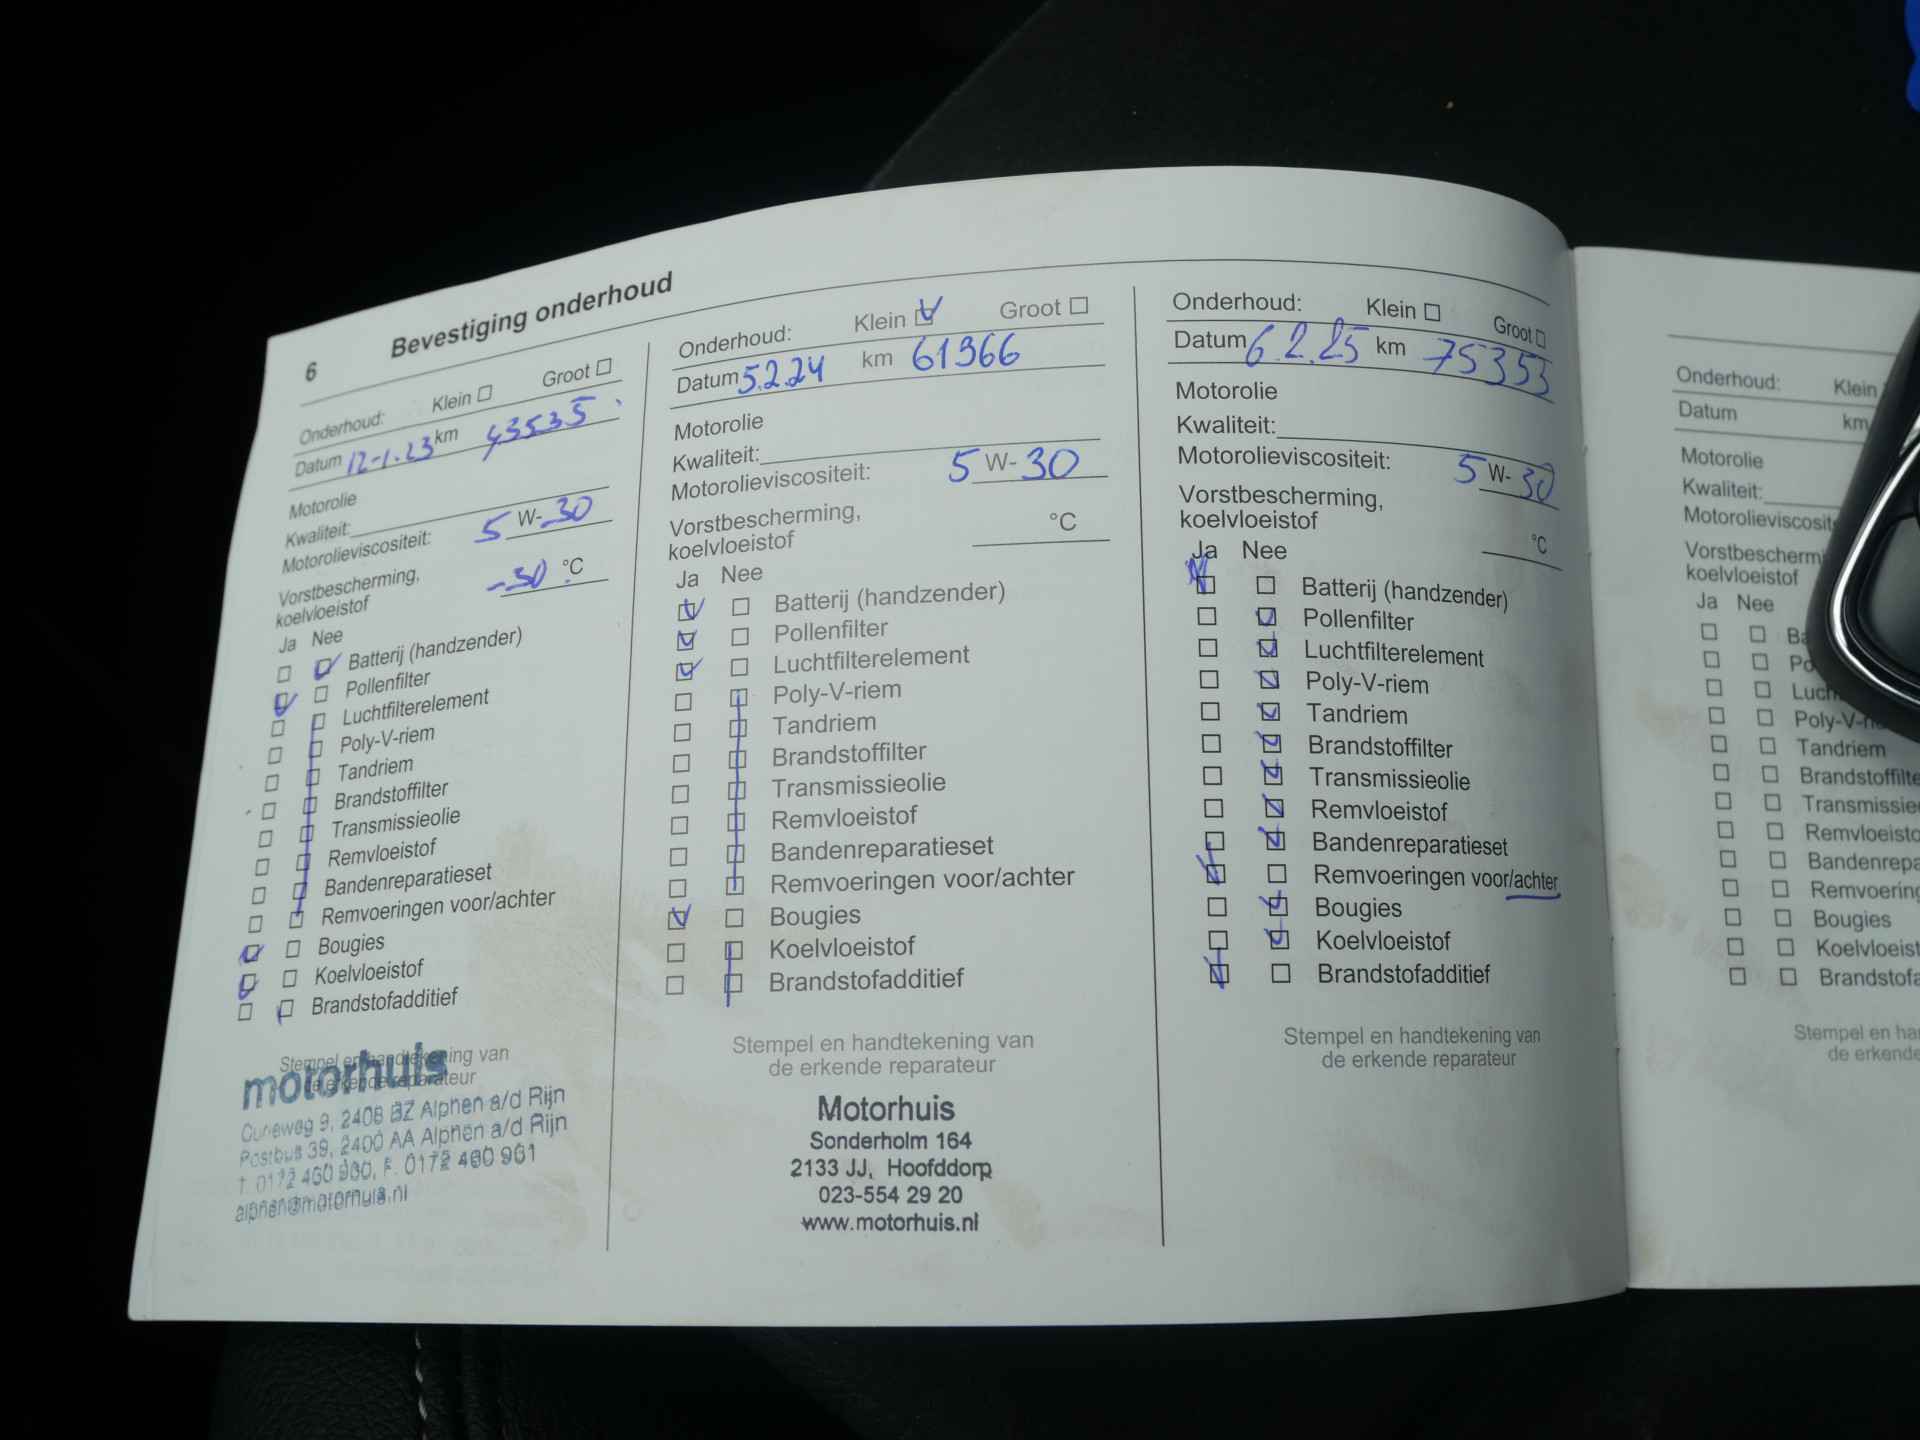 6 Bevestiging onderhoud
Onderhoud: Klein Groot
Datum 12-1-23 km 43535
Motorolie
Kwaliteit:
Motorolieviscositeit: 5 W-30
Vorstbescherming,
koelvloeistof -30 °C
Ja Nee
Batterij (handzender)
Pollenfilter
Luchtfilterelement
Poly-V-riem
Tandriem
Brandstoffilter
Transmissieolie
Remvloeistof
Bandenreparatieset
Remvoeringen voor/achter
Bougies
Koelvloeistof
Brandstofadditief
Stempel en handtekening van
de erkende reparateur
motorhuis
9, 2408 BZ Alphen a/d Rijn
Postbus 39, 2400 AA Alphen a/d Rijn
T. 0172 460 960, F. 0172 460 961
alphen@motorhuis.nl
Onderhoud: Klein Groot
Datum 5.2.24 km 61966
Motorolie
Kwaliteit:
Motorolieviscositeit: 5 W-30
Vorstbescherming,
koelvloeistof °C
Ja Nee
Batterij (handzender)
Pollenfilter
Luchtfilterelement
Poly-V-riem
Tandriem
Brandstoffilter
Transmissieolie
Remvloeistof
Bandenreparatieset
Remvoeringen voor/achter
Bougies
Koelvloeistof
Brandstofadditief
Stempel en handtekening van
de erkende reparateur
Motorhuis
Sonderholm 164
2133 JJ, Hoofddorp
023-554 29 20
www.motorhuis.nl
Onderhoud: Klein Groot
Datum 6.2.25 km 75353
Motorolie
Kwaliteit:
Motorolieviscositeit: 5 W-30
Vorstbescherming,
koelvloeistof °C
Ja Nee
Batterij (handzender)
Pollenfilter
Luchtfilterelement
Poly-V-riem
Tandriem
Brandstoffilter
Transmissieolie
Remvloeistof
Bandenreparatieset
Remvoeringen voor/achter
Bougies
Koelvloeistof
Brandstofadditief
Stempel en handtekening van
de erkende reparateur
Onderhoud: Klein
Datum km
Motorolie
Kwaliteit:
Motorolieviscosit
Vorstbescherm
koelvloeistof
Ja Nee
Ba
Po
Luch
Poly-V-r
Tandriem
Brandstoffilte
Transmissie
Remvloeisto
Bandenrepa
Remvoering
Bougies
Koelvloeist
Brandstofa
Stempel en han
de erkende